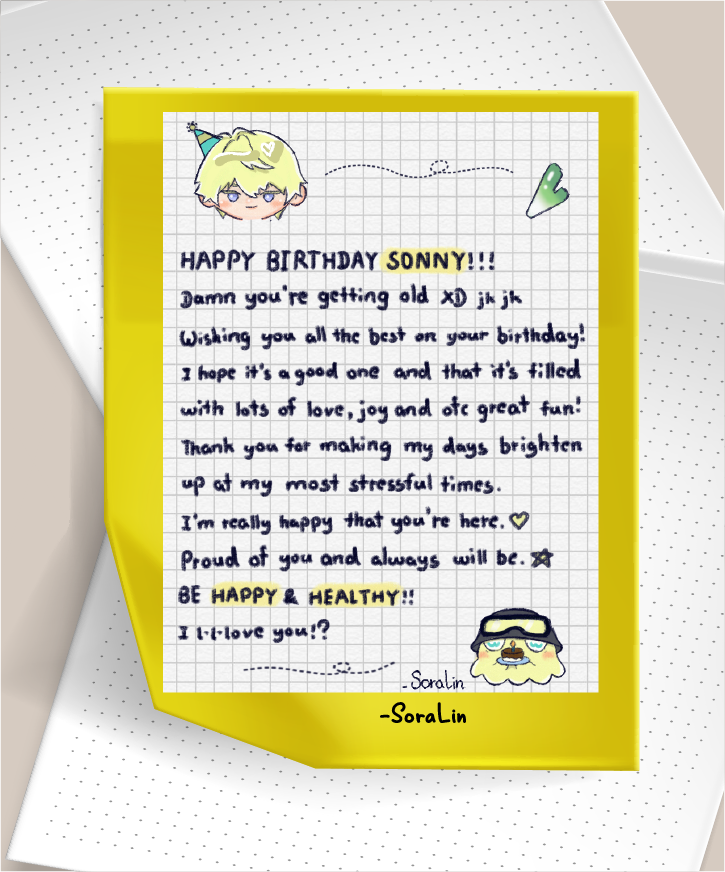 HAPPY BIRTHDAY SONNY!!!
Damn you're getting old XD jk jk
Wishing you all the best on your birthday!
I hope it's a good one and that it's filled
with lots of love, joy and ofc great fun!
Thank you for making my days brighten
up at my most stressful times.
I'm really happy that you're here.♡
Proud of you and always will be.☆
BE HAPPY & HEALTHY!!
I l-l-love you!?
-SoraLin
-SoraLin